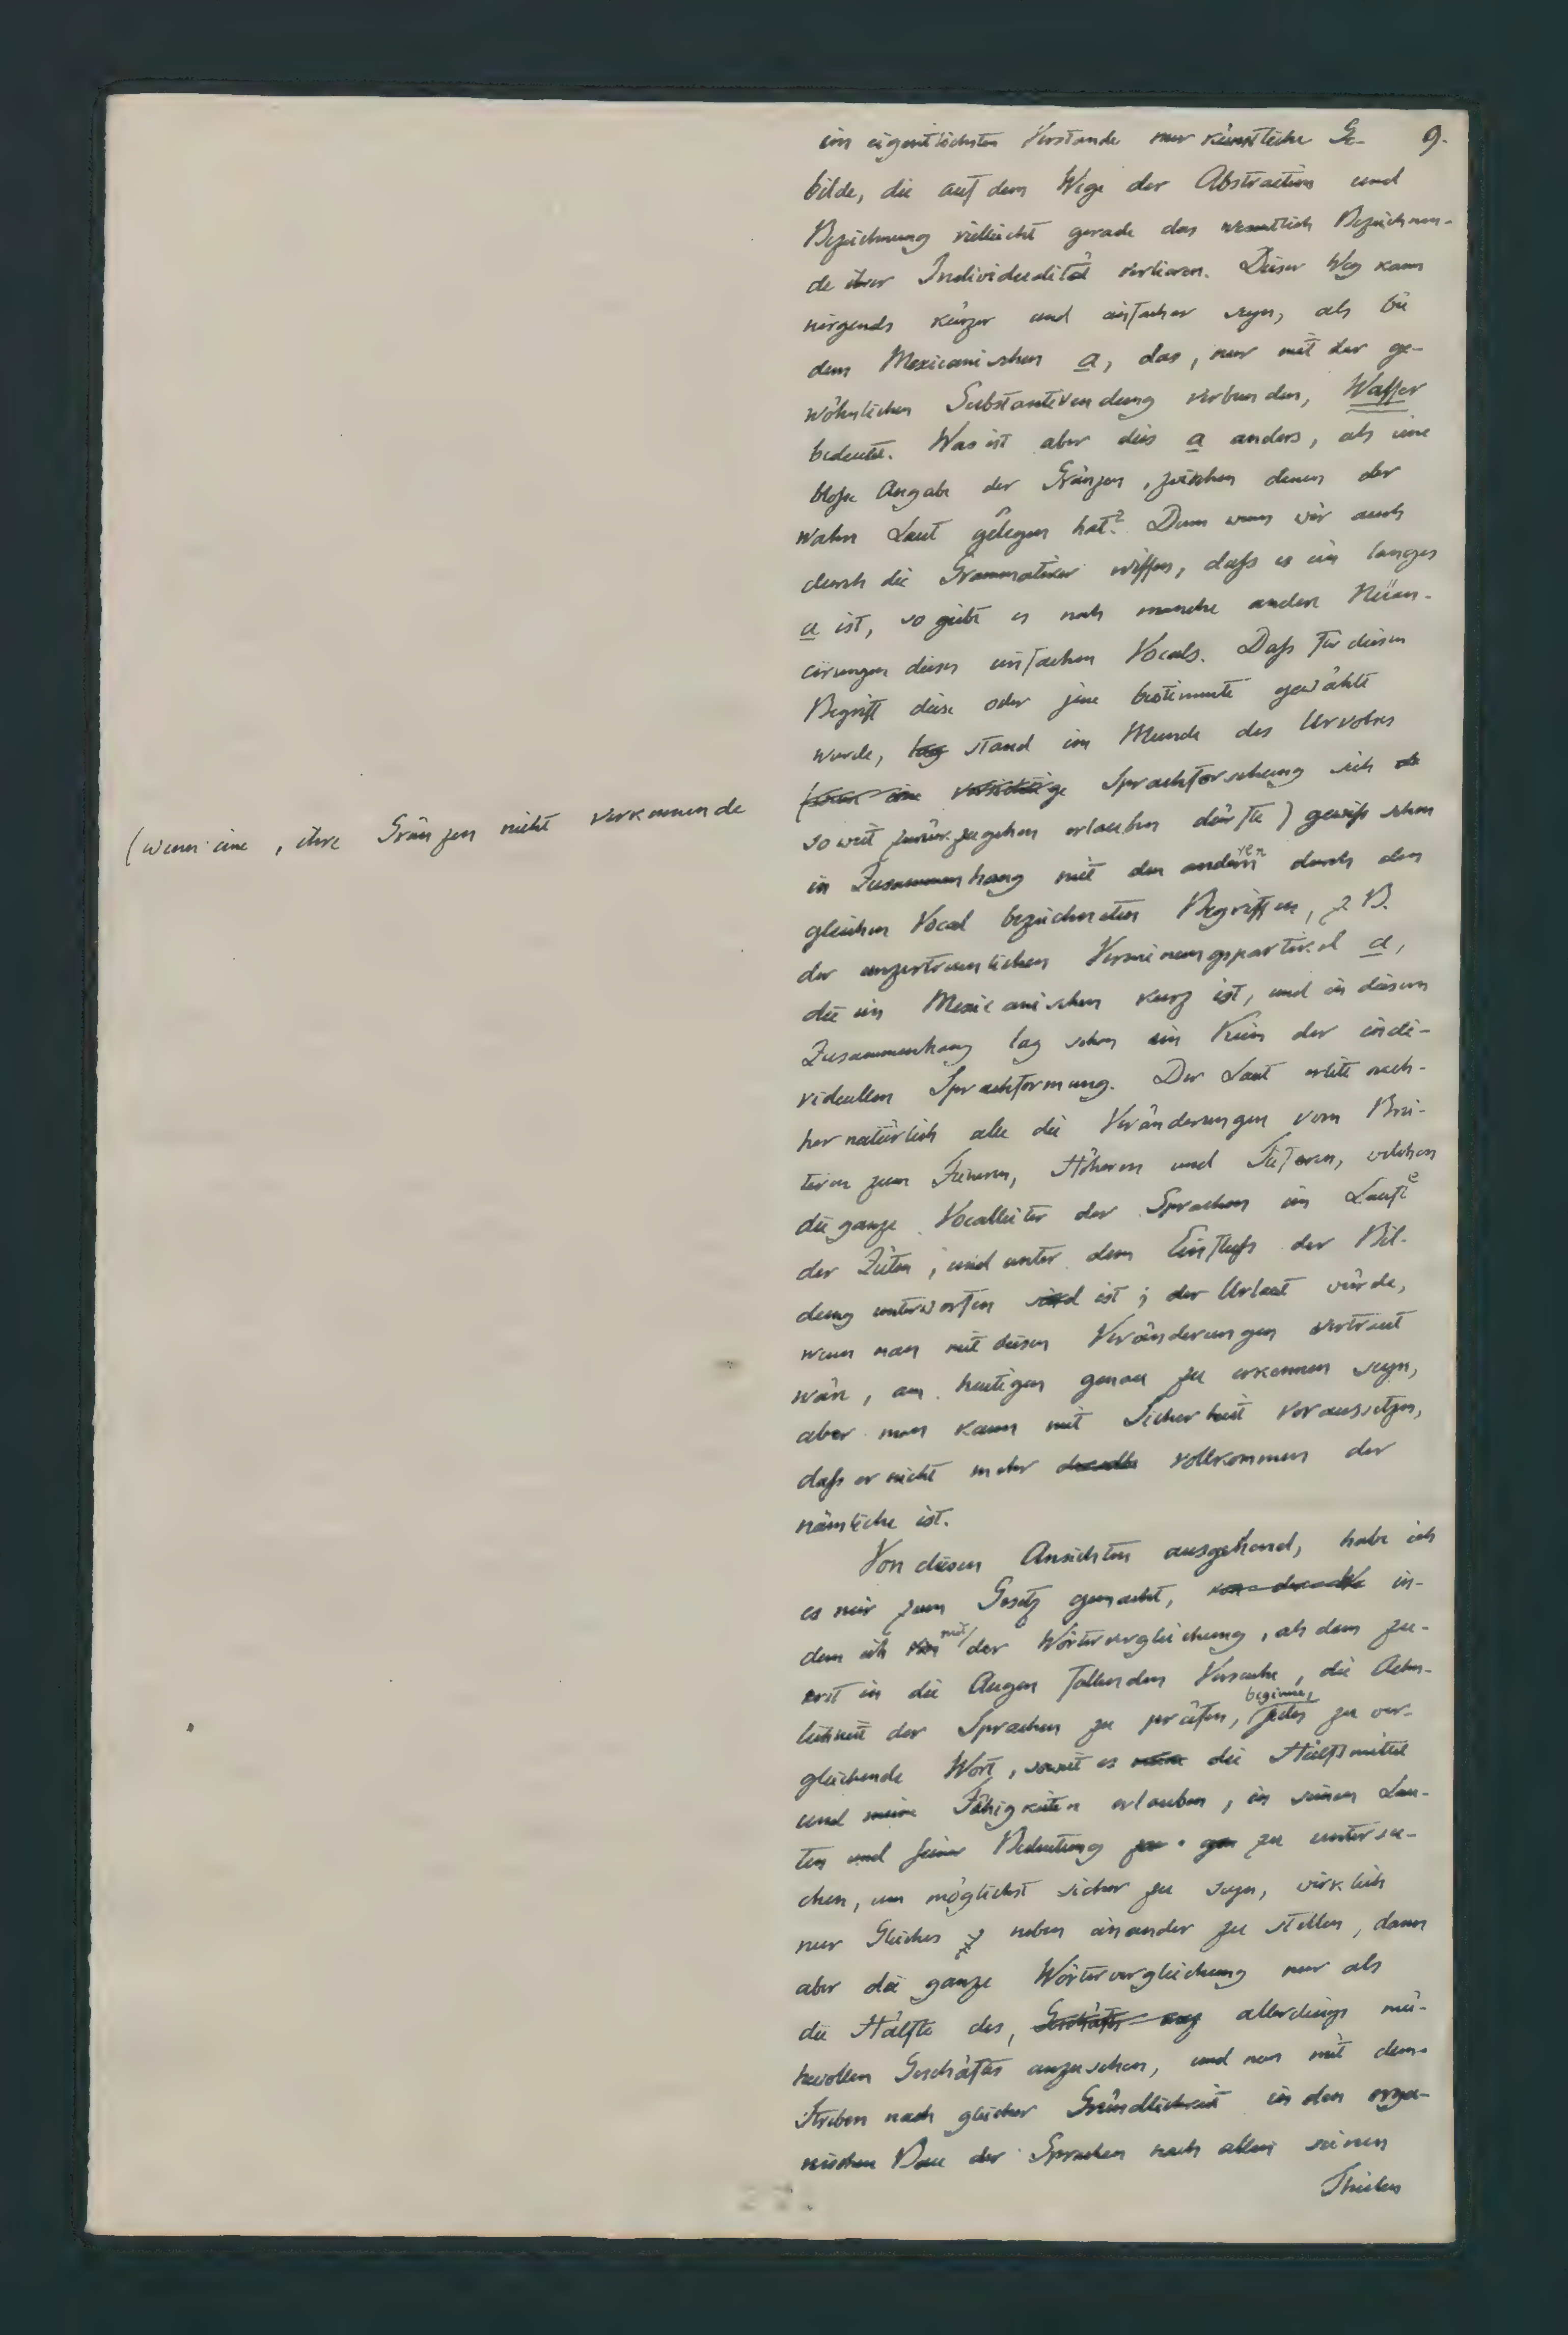 9.
im eigentlichsten Verstande nur künstliche Ge-
bilde, die auf dem Wege der Abstraction und
Bezeichnung vielleicht gerade das wesentlich Bezeichnen-
de ihrer Individualität verlieren. Dieser Weg kann
nirgends kürzer und einfacher seyn, als bei
dem Mexicanischen a, das, nur mit der ge-
wöhnlichen Substantivendung verbunden, Wasser
bedeutet. Was ist aber dies a anders, als eine
bloße Angabe der Gränzen, zwischen denen der
wahre Laut gelegen hat? Denn wenn wir auch
durch die Grammatiker wissen, daß es ein langes
a ist, so giebt es noch manche andere Nüan-
cirungen dieses einfachen Vocals. Daß für diesen
Begriff diese oder jene bestimmte gewählt
wurde, lag stand im Munde des Urvolkes
(wenn eine , ihre Gränzen nicht verkennende
(wenn eine vorsichtige Sprachforschung sich
so weit zurückzugehen erlauben dürfte) gewiß schon
in Zusammenhang mit den anderen durch den
gleichen Vocal bezeichneten Begriffen, z. B.
der unzertrennlichen Verneinungspartikel a,
die im Mexicanischen kurz ist, und in diesem
Zusammenhang lag schon ein Keim der indi-
viduellen Sprachformung. Der Laut erlitt nach-
her natürlich alle die Veränderungen vom Brei-
teren zum Feineren, Höheren und Tieferen, welchen
die ganze Vocalleiter der Sprachen im Laufe
der Zeiten, und unter dem Einfluß der Bil-
dung unterworfen sind ist; der Urlaut würde,
wenn man mit diesen Veränderungen vertraut
wäre, am heutigen genau zu erkennen seyn,
aber man kann mit Sicherheit voraussetzen,
daß er nicht mehr derselbe vollkommen der
nämliche ist.
Von diesen Ansichten ausgehend, habe ich
es mir zum Gesetz gemacht, von der We in-
dem ich von mit der Wörtervergleichung, als dem zu-
erst in die Augen fallenden Versuche, die Aehn-
lichkeit der Sprachen zu prüfen, beginne, jedes zu ver-
gleichende Wort, soweit es meine die Hülfsmittel
und meine Fähigkeiten erlauben, in seinen Lau-
ten und seiner Bedeutung zu gen zu untersu-
chen, um möglichst sicher zu seyn, wirklich
nur Gleiches z neben einander zu stellen, dann
aber die ganze Wörtervergleichung nur als
die Hälfte des, Geschäfts allerdings mü-
hevollen Geschäftes anzusehen, und nun mit dem
Streben nach gleicher Gründlichkeit in den orga-
nischen Bau der Sprachen nach allen seinen
Theilen